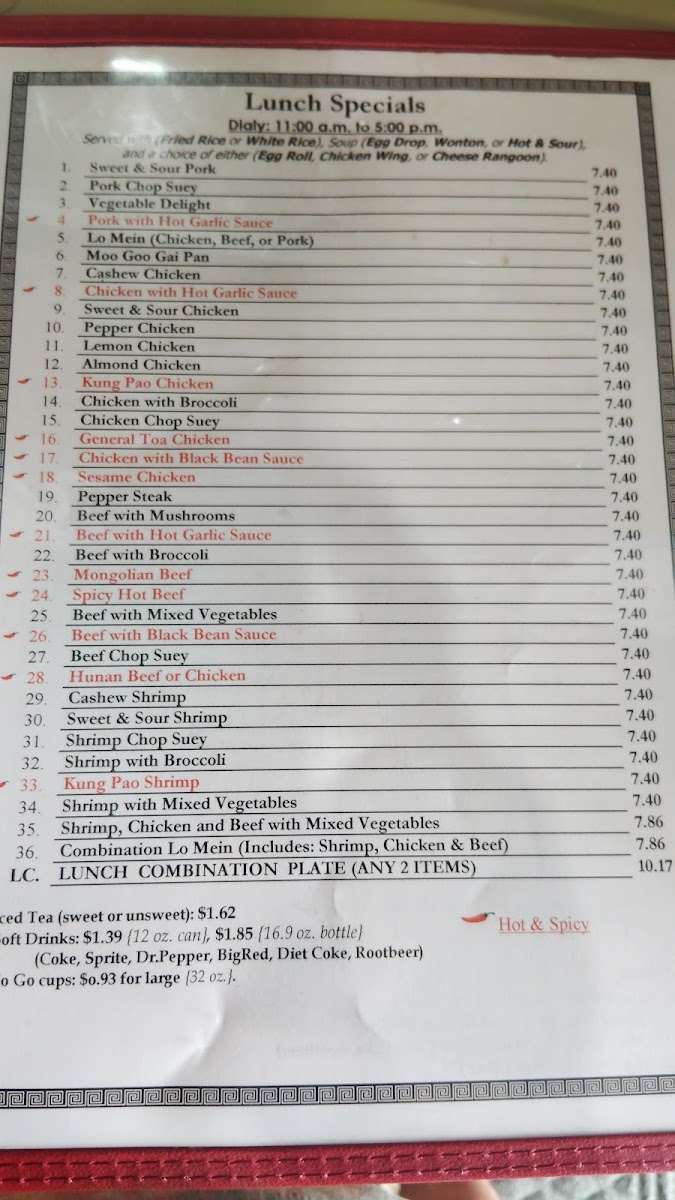 Lunch Specials
Dialy: 11:00 a.m. to 5:00 p.m.
Served with (Fried Rice or White Rice), Soup (Egg Drop, Wonton, or Hot & Sour),
and a choice of either (Egg Roll, Chicken Wing, or Cheese Rangoon).
1. Sweet & Sour Pork 7.40
2. Pork Chop Suey 7.40
3. Vegetable Delight 7.40
4 Pork with Hot Garlic Sauce 7.40
5. Lo Mein (Chicken, Beef, or Pork) 7.40
6. Moo Goo Gai Pan 7.40
7. Cashew Chicken 7.40
8. Chicken with Hot Garlic Sauce 7.40
9. Sweet & Sour Chicken 7.40
10. Pepper Chicken 7.40
11. Lemon Chicken 7.40
12. Almond Chicken 7.40
13. Kung Pao Chicken 7.40
14. Chicken with Broccoli 7.40
15. Chicken Chop Suey 7.40
16. General Toa Chicken 7.40
17. Chicken with Black Bean Sauce 7.40
18. Sesame Chicken 7.40
19. Pepper Steak 7.40
20. Beef with Mushrooms 7.40
21. Beef with Hot Garlic Sauce 7.40
22. Beef with Broccoli 7.40
23. Mongolian Beef 7.40
24. Spicy Hot Beef 7.40
25. Beef with Mixed Vegetables 7.40
26. Beef with Black Bean Sauce 7.40
27. Beef Chop Suey 7.40
28. Hunan Beef or Chicken 7.40
29. Cashew Shrimp 7.40
30. Sweet & Sour Shrimp 7.40
31. Shrimp Chop Suey 7.40
32. Shrimp with Broccoli 7.40
33. Kung Pao Shrimp 7.40
34. Shrimp with Mixed Vegetables 7.40
35. Shrimp, Chicken and Beef with Mixed Vegetables 7.86
36. Combination Lo Mein (Includes: Shrimp, Chicken & Beef) 7.86
LC. LUNCH COMBINATION PLATE (ANY 2 ITEMS) 10.17
ced Tea (sweet or unsweet): $1.62
oft Drinks: $1.39 {12 oz. can}, $1.85 {16.9 oz. bottle}
(Coke, Sprite, Dr.Pepper, BigRed, Diet Coke, Rootbeer)
o Go cups: $0.93 for large {32 oz.}.
Hot & Spicy